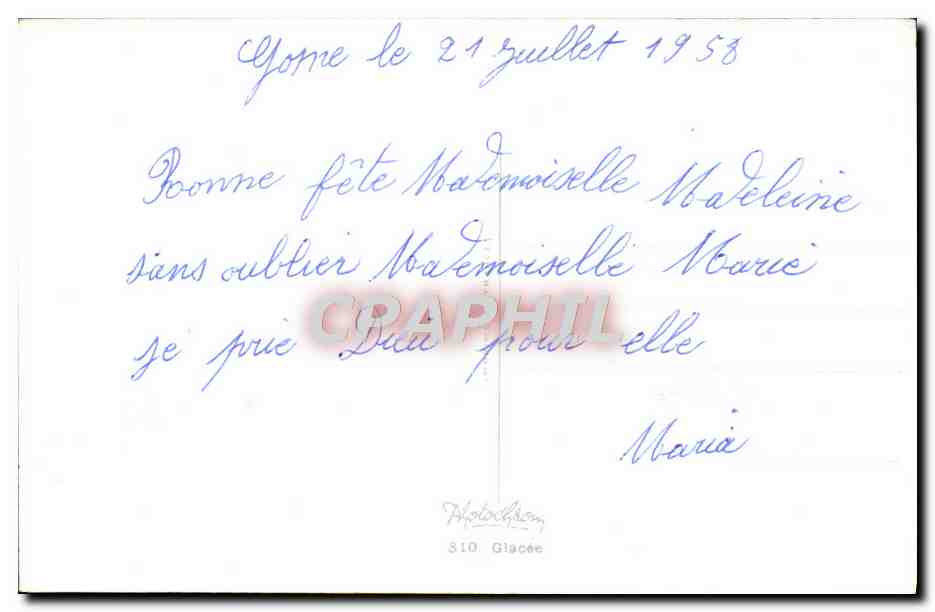 le 21 Juillet 1958
Bonne fête Mademoiselle Madeleine
sans oublier Mademoiselle Marie
je prie Dieu pour elle
Maria
CPAPHIL
Photochrom
310 Glacée